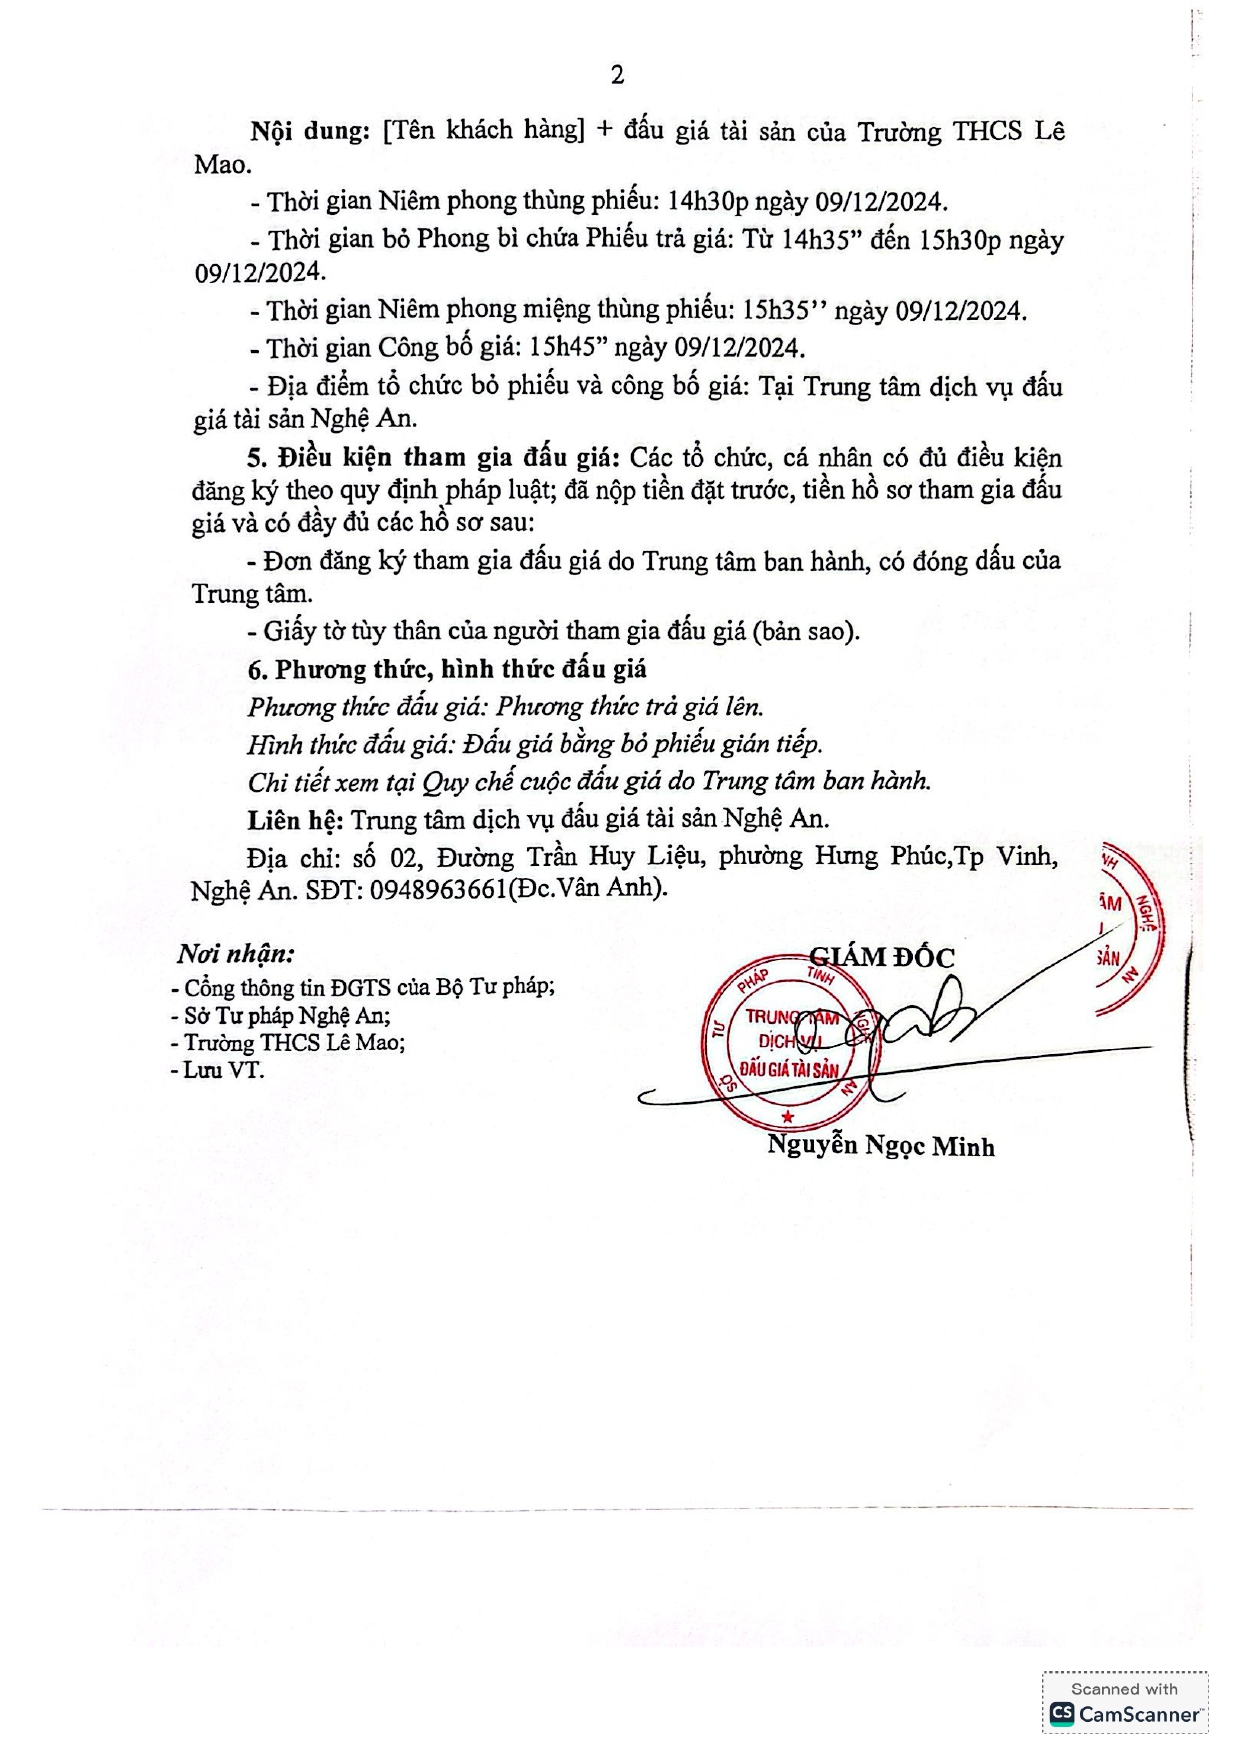 2
Nội dung: [Tên khách hàng] + đấu giá tài sản của Trường THCS Lê
Mao.
- Thời gian Niêm phong thùng phiếu: 14h30p ngày 09/12/2024.
- Thời gian bỏ Phong bì chứa Phiếu trả giá: Từ 14h35” đến 15h30p ngày
09/12/2024.
- Thời gian Niêm phong miệng thùng phiếu: 15h35’’ ngày 09/12/2024.
- Thời gian Công bố giá: 15h45” ngày 09/12/2024.
- Địa điểm tổ chức bỏ phiếu và công bố giá: Tại Trung tâm dịch vụ đấu
giá tài sản Nghệ An.
5. Điều kiện tham gia đấu giá: Các tổ chức, cá nhân có đủ điều kiện
đăng ký theo quy định pháp luật; đã nộp tiền đặt trước, tiền hồ sơ tham gia đấu
giá và có đầy đủ các hồ sơ sau:
- Đơn đăng ký tham gia đấu giá do Trung tâm ban hành, có đóng dấu của
Trung tâm.
- Giấy tờ tùy thân của người tham gia đấu giá (bản sao).
6. Phương thức, hình thức đấu giá
Phương thức đấu giá: Phương thức trả giá lên.
Hình thức đấu giá: Đấu giá bằng bỏ phiếu gián tiếp.
Chi tiết xem tại Quy chế cuộc đấu giá do Trung tâm ban hành.
Liên hệ: Trung tâm dịch vụ đấu giá tài sản Nghệ An.
Địa chỉ: số 02, Đường Trần Huy Liệu, phường Hưng Phúc,Tp Vinh,
Nghệ An. SĐT: 0948963661(Đc.Vân Anh).
Nơi nhận:
- Cổng thông tin ĐGTS của Bộ Tư pháp;
- Sở Tư pháp Nghệ An;
- Trường THCS Lê Mao;
- Lưu VT.
GIÁM ĐỐC
SỞ TƯ PHÁP TỈNH NGHỆ AN
TRUNG TÂM
DỊCH VỤ
ĐẤU GIÁ TÀI SẢN
NH NGHỆ AN
ÂM
SẢN
Nguyễn Ngọc Minh
Scanned with
CS CamScanner